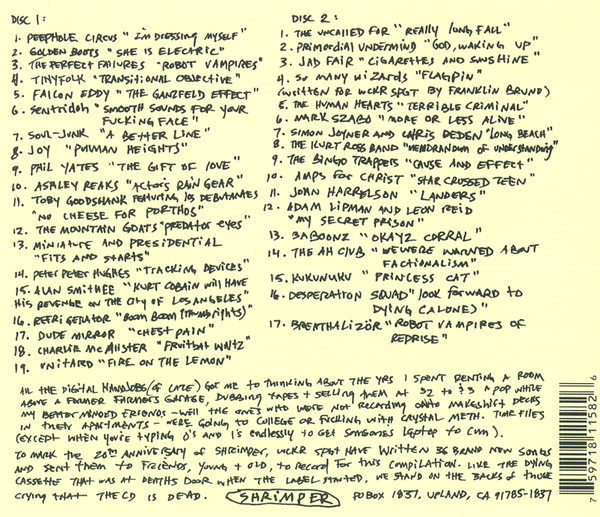 DISC 1:
1. PEEPHOLE CIRCUS "I'm DRESSING MYSELF"
2. GOLDEN BOOTS "SHE IS ELECTRIC"
3. THE PERFECT FAILURES "ROBOT VAMPIRES"
4. TINYFOLK "TRANSITIONAL OBJECTIVE"
5. FALCON EDDY "THE GANZFELD EFFECT"
6. SENTRIDOH "SMOOTH SOUNDS FOR YOUR
FUCKING FACE"
7. SOUL-JUNK "A BETTER LINE"
8. JOY "HEIGHTS"
9. PHIL YATES "THE GIFT OF LOVE"
10. ASHLEY REAKS "ACTOR'S RAIN GEAR"
11. TOBY GOODSHANK FEATURING LOS DEBUTANTES
"NO CHEESE FOR PORTHOS"
12. THE MOUNTAIN GOATS "PREDATOR EYES"
13. MINIATURE AND PRESIDENTIAL
"FITS AND STARTS"
14. PETER PETER HUGHES "TRACKING DEVICES"
15. ALAN SMITHEE "KURT COBAIN WILL HAVE
HIS REVENGE ON THE CITY OF LOS ANGELES"
16. REFRIGERATOR "BOOM BOOM (THUMB RIGHTS)"
17. DUDE MIRROR "CHEST PAIN"
18. CHARLIE McALISTER "FRUITBAT WALTZ"
19. UNITARD "FIRE ON THE LEMON"
DISC 2:
1. THE UNCALLED FOR "REALLY LONG FALL"
2. PRIMORDIAL UNDERMIND "GOD, WAKING UP"
3. JAD FAIR "CIGARETTES AND SUNSHINE"
4. SO MANY WIZARDS "FLAGPIN"
(WRITTEN FOR WCKR SPGT BY FRANKLIN BRUNO)
5. THE HUMAN HEARTS "TERRIBLE CRIMINAL"
6. MARK SZABO "MORE OR LESS ALIVE"
7. SIMON JOYNER AND CHRIS DEDEN "LONG BEACH"
8. THE KURT ROSS BAND "MEMORANDUM OF UNDERSTANDING"
9. THE BINGO TRAPPERS "CAUSE AND EFFECT"
10. AMPS FOR CHRIST "STAR CROSSED TEEN"
11. JOHN HARRELSON "LANDERS"
12. ADAM LIPMAN AND LEON REID
"MY SECRET PRISON"
13. BABOONZ "OKAYZ CORRAL"
14. THE AH CLUB "WE WERE WARNED ABOUT
FACTIONALISM"
15. KUKUNUKU "PRINCESS CAT"
16. DESPERATION SQUAD "LOOK FORWARD TO
DYING (ALONE)"
17. BREATHALIZÖR "ROBOT VAMPIRES OF
REDRISE"
All THE DIGITAL HANDJOBS (OF LATE) GOT ME TO THINKING ABOUT THE YRS I SPENT RENTING A ROOM
ABOVE A FORMER FARMERS GARAGE, DUBBING TAPES + SELLING THEM AT $2 TO $3 A POP WHILE
MY BETTER MINDED FRIENDS - WELL THE ONES WHO WERE NOT RECORDING ONTO MAKESHIFT DECKS
IN THEIR APARTMENTS - WERE GOING TO COLLEGE OR FUCKING WITH CRYSTAL METH. TIME FLIES
(EXCEPT WHEN YOU'RE TYPING 0's AND 1's ENDLESSLY TO GET SOMEONES LAPTOP TO CUM).
TO MARK THE 20TH ANNIVERSARY OF SHRIMPER, WCKR SPGT HAVE WRITTEN 36 BRAND NEW SONGS
AND SENT THEM TO FRIENDS, YOUNG + OLD, TO RECORD FOR THIS COMPILATION. LIKE THE DYING
CASSETTE THAT WAS AT DEATHS DOOR WHEN THE LABEL STARTED, WE STAND ON THE BACKS OF THOSE
CRYING THAT THE CD IS DEAD. SHRIMPER PO BOX 1837, UPLAND, CA 91785-1837
7 59718 11582 6